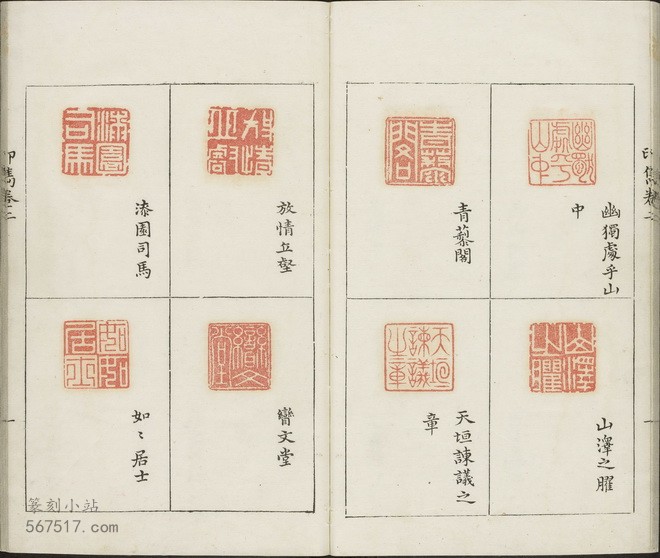 印雋卷二
幽獨處乎山
中
山澤之臞
青藜閣
天垣諫議之
章
放情丘壑
鸞文堂
漆園司馬
如〻居士
印雋卷二
一
一
篆刻小站
567517.com